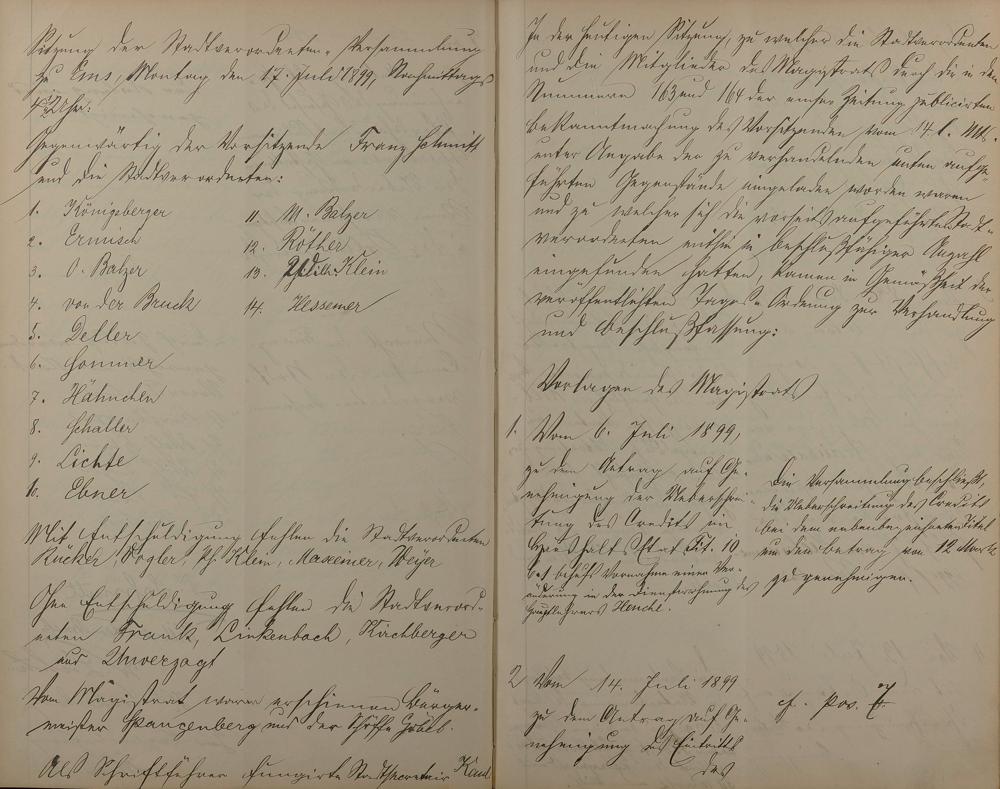 Sitzung der Stadtverordneten-Versammlung
zu Ems, Montag, den 17. Juli 1899, Nachmittags
4½ Uhr.
Gegenwärtig der Vorsitzende Franz Schmitt
und die Stadtverordneten:
1. Königsberger
2. Ermisch
3. O. Balzer
4. von der Bruck
5. Deller
6. Sommer
7. Hähnchen
8. Schaller
9. Lichte
10. Ebner
11. M. Balzer
12. Röther
13. Wilh. Klein
14. Hessemer
Mit Entschuldigung fehlen die Stadtverordneten
Rücker, Vogler, Ph. Klein, Maxeiner, Weyer
Ohne Entschuldigung fehlen die Stadtverord-
neten Frank, Linkenbach, Kirchberger
und Unverzagt
Vom Magistrat waren erschienen Bürger-
meister Spangenberg und der Schöffe Göbel.
Als Schriftführer fungirte Stadtsecretair Kaul
In der heutigen Sitzung, zu welcher die Stadtverordneten
und die Mitglieder des Magistrats durch die in den
Nummern 163 und 164 der Emser Zeitung publicirten
Bekanntmachung des Vorsitzenden vom 14. l. Mts.
unter Angabe der zu verhandelnden unten aufge-
führten Gegenstände eingeladen worden waren
und zu welcher sich die vorseits aufgeführten Stadt-
verordneten mithin in beschlußfähiger Anzahl
eingefunden hatten, kamen in Gemäßheit der
veröffentlichten Tages-Ordnung zur Verhandlung
und Beschlußfassung:
Vorlagen des Magistrats
1. Vom 6. Juli 1899,
zu dem Antrag auf Ge-
nehmigung der Ueberschrei-
tung des Credits im
Haushaltsetat Tit. 10
behufs Vornahme einer Ver-
änderung in der Dienstwohnung des
Hauptlehrers Henche.
Die Versammlung beschließt,
die Ueberschreitung des Credits
bei dem nebenbezeichneten Titel
um den Betrag von 12 Mark
zu genehmigen.
2 Vom 14. Juli 1899
zu dem Antrag auf Ge-
nehmigung des Eintritts
des
cf. pos.